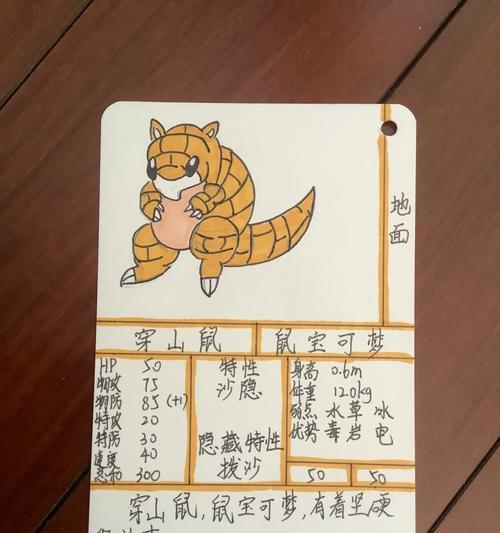 地面
穿山鼠 鼠宝可梦
HP 50
物攻 75
物防 85 (+1)
特攻 20
特防 30
速度 40
总和 300
特性
沙隐
隐藏特性
拨沙
身高 0.6m
体重 12.0kg
弱点 水 草 冰
优势 毒 岩 电
50 50
穿山鼠,鼠宝可梦,有着坚硬